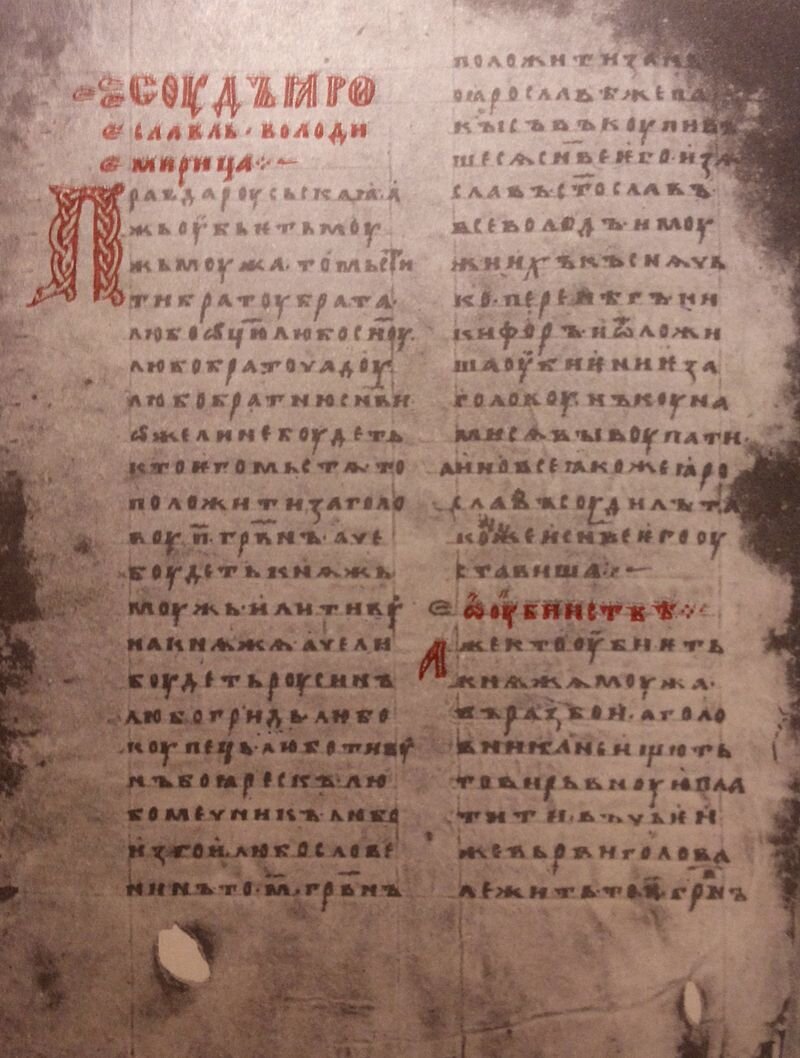 СОУДЪ ꙖРО
СЛАВЛЬ · ВОЛОДИ
МИРИЦА
Правда роусьскаꙗ · а
жь оубьѥть моу
жь моужа · то мьсти
ти братоу брата ·
любо ѡц҃ю любо сн҃оу
любо братоучадоу
любо братню сн҃ви
ѡже ли не боудеть
кто ѥго мьстѧ то
положити за голо
воу · п҃ · грв҃нъ · аче
боудеть кнѧжь
моужь · или тивоу
на кнѧжѧ · аче ли
боудеть роусинъ
любо гридь · любо
коупець · любо тивоу
нъ боꙗрескъ · лю
бо мечникъ · любо
изгои · любо слове
нинъ · то · м҃ · грв҃нъ
положити за нь
ꙗрославѣ же па
кы съвъкоупивъ
шесѧ сн҃ве ѥго · изѧ
славъ · ст҃ославъ ·
всеволодъ · и моу
жи ихъ къснѧчь
ко · перенѣгъ · ни
кифоръ · и ѿложи
ша оубиѥниѥ за
головоу · нъ коуна
ми сѧ выкоупати ·
а ино все ꙗкоже ꙗро
славъ соудилъ · та
коже и сн҃ве ѥго оу
ставиша
ѡ оубииствѣ
Аже кто оубиѥть
кнѧжѧ моужа ·
въ разбои · а голо
вника не ищють
то вирьвноую пла
тити · въ чьѥи
же вьрви голова
лежить · то · п҃ · грв҃нъ